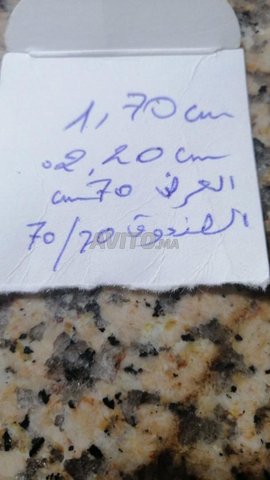 1,70 cm
2,20 cm
العرض 70 cm
الصندوق 70/70
AVITO.MA